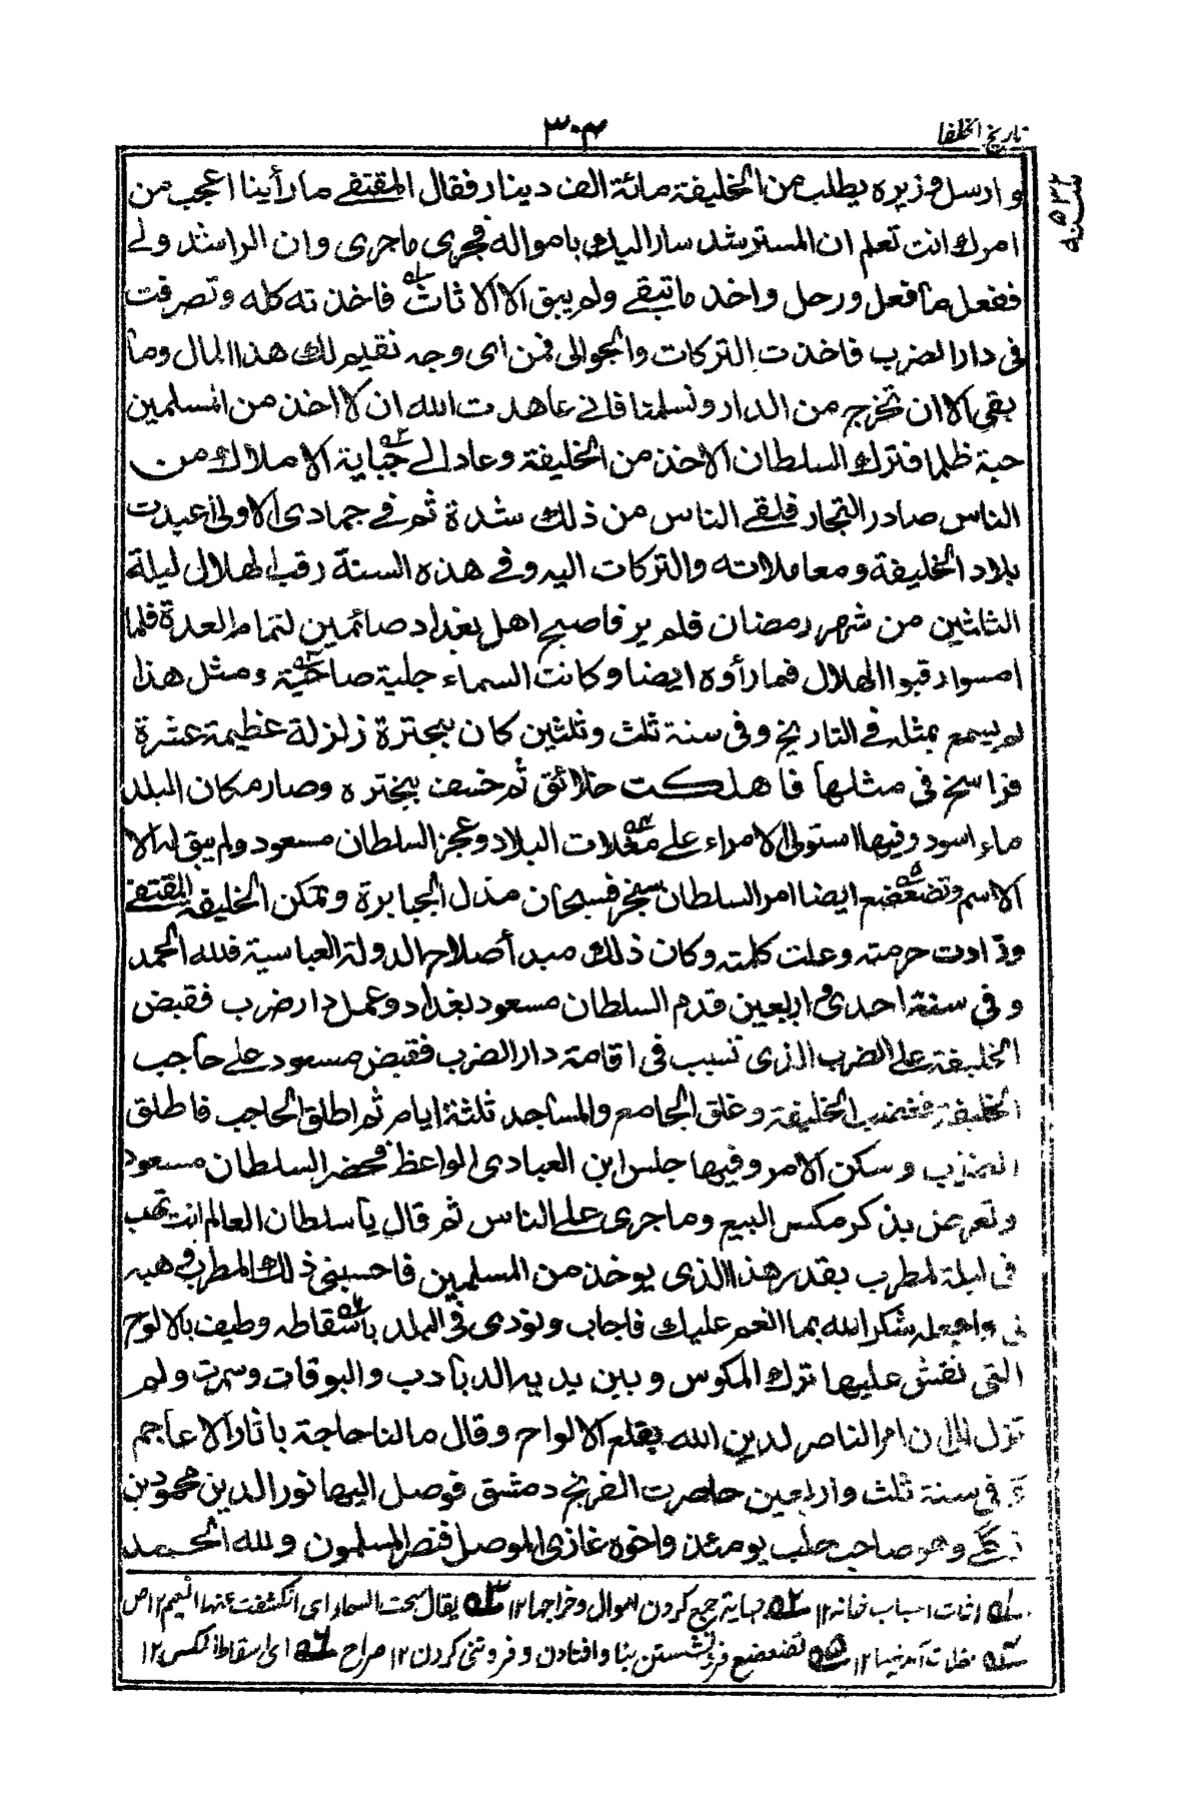 تاريخ الخلفا
٣٠٤
سنة ٥٣٢
و ارسل وزيره يطلب من الخليفة مائة الف دينار فقال المقتفے ما رأينا اعجب من
امرك انت تعلم ان المسترشد سار اليك باموالہ فجرى ماجرى وان الراشد ولے
ففعل ما فعل ورحل واخذ ما تبقے ولم يبق الا الاثاث فاخذته كله وتصرفت
فى دار الضرب فاخذت التركات والجوالى فمن اى وجہ نقيم لك هذا المال وما
بقى الا ان نخرج من الدار ونسلمها فانے عاهدت الله ان لا اخذ من المسلمين
حبة ظلما فترك السلطان الاخذ من الخليفة وعاد الے جباية الاملاك من
الناس صادر التجار فلقے الناس من ذلك شدة ثم فے جمادى الاولى اعيدت
بلاد الخليفة ومعاملاته والتركات اليہ وفے هذه السنة رقب الهلال ليلة
الثلثين من شهر رمضان فلم ير فاصبح اهل بغداد صائمين لتمام العدة فلما
امسوا رقبوا الهلال فما رأوه ايضا وكانت السماء جلية صاحية ومثل هذا
لم يسمع بمثلہ فے التاريخ وفى سنة ثلث وثلثين كان ببحترة زلزلة عظيمة عشرة
فراسخ فى مثلها فاهلكت خلائق ثم خسف ببحتره وصار مكان البلد
ماء اسود وفيها استولى الامراء علے مغلات البلاد وعجز السلطان مسعود ولم يبق لہ الا
الاسم وتضعضع ايضا امر السلطان سنجر فسبحان مذل الجبابرة وتمكن الخليفة المقتفے
وزادت حرمتہ وعلت كلمتہ وكان ذلك مبدأ صلاح الدولة العباسية فلله الحمد
و فى سنة احدى و اربعين قدم السلطان مسعود بغداد وعمل دار ضرب فقبض
الخليفة علے الضراب الذى تسبب فى اقامة دار الضرب فقبض مسعود علے حاجب
الخليفة فغضب الخليفة وغلق الجامع والمساجد ثلثة ايام ثم اطلق الحاجب فاطلق
الضراب وسكن الامر وفيها جلس ابن العبادى الواعظ فحضر السلطان مسعود
وتعرض بذكر مكس البيع وما جرى علے الناس ثم قال يا سلطان العالم انت تهب
فى ليلة لمطرب بقدر هذا الذى يوخذ من المسلمين فاحسبنى ذلك المطرب فهبہ
لى واجعلہ شكرا لله بما انعم عليك فاجاب ونودى فى البلد باسقاطہ وطيف بالالواح
التى نقش عليها ترك المكوس وبين يديہ الدبادب والبوقات وسمرت ولم
تزل الى ان امر الناصر لدين الله بقلع الالواح وقال ما لنا حاجة باثار الاعاجم
و فى سنة ثلث واربعين حاصرت الفرنج دمشق فوصل اليها نور الدين محمود بن
زنكے وهو صاحب حلب يومئذ واخوه غازى الموصل فنصر المسلمون ولله الحمد
لہ اثاث اسباب خانہ ١٢ ٢ہ جباية جمع كردن اموال وخراجہا ١٢ ٣ہ يقال صحت السماء اى انكشفت عنها الغيم ١٢ ص
٤ہ مغلات آمدنيہا ١٢ ٥ہ تضعضع فرونشستن بنا وافتادن و فروتنى كردن ١٢ صراح ٦ہ اى اسقاط المكس ١٢